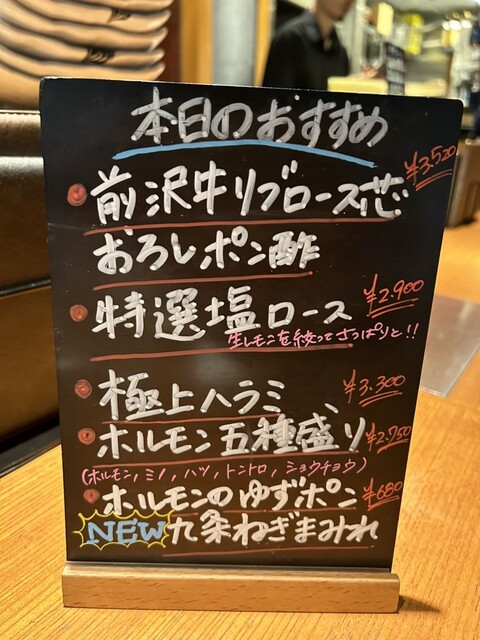 本日のおすすめ
前沢牛リブロース芯 ¥3,520
おろしポン酢
特選塩ロース ¥2,900
生レモンを絞ってさっぱりと!!
極上ハラミ ¥3,300
ホルモン五種盛り ¥2,750
(ホルモン, ミノ, ハツ, トントロ, ショウチョウ)
ホルモンのゆずポン ¥680
NEW 九条ねぎまみれ